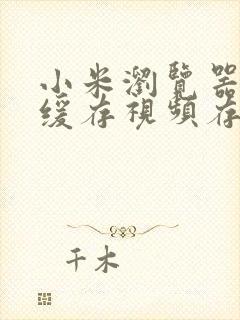 小米瀏覽器
緩存視頻存
千木